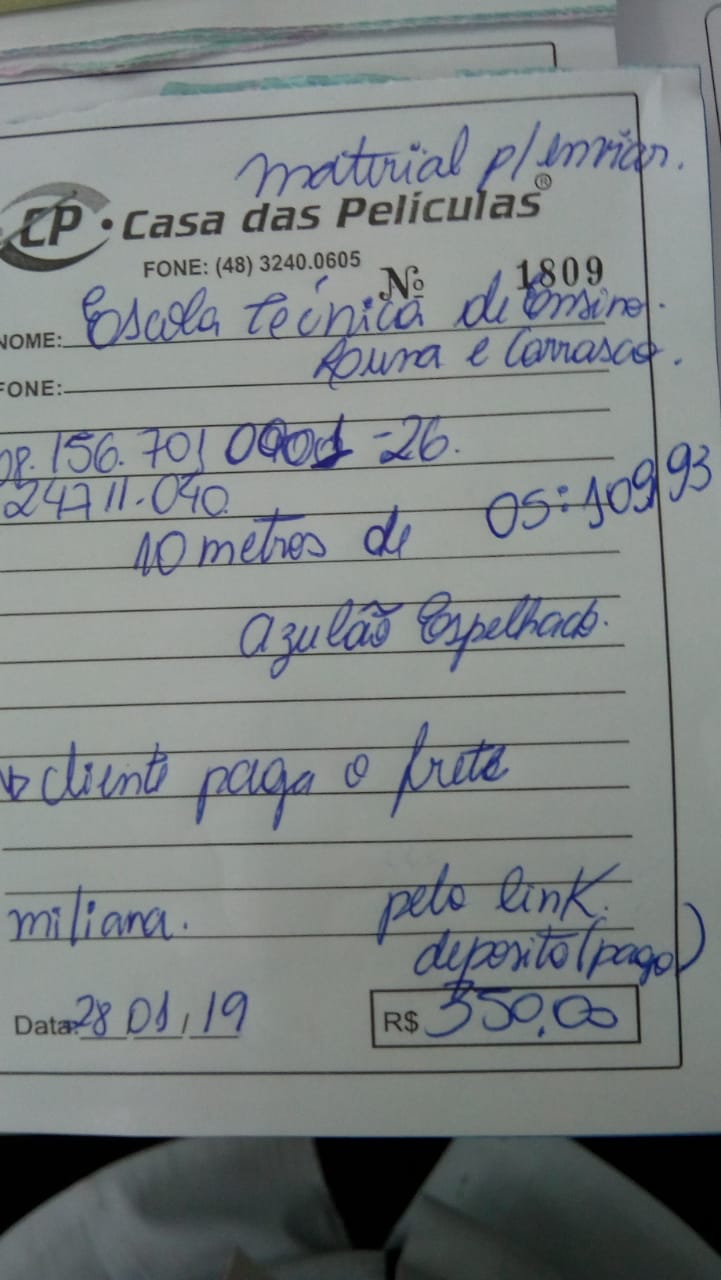 material p/ enviar.
CP • Casa das Películas®
FONE: (48) 3240.0605
Nº 1809
NOME: Escola técnica de Ensino.
e Carrasco.
FONE:
08.156.701 0001-26.
24711-040
OS: 10993
10 metros de
Azulão Espelhado.
cliente paga o frete
miliana. pelo link.
deposito (pago)
Data: 28/01/19 R$ 350,00